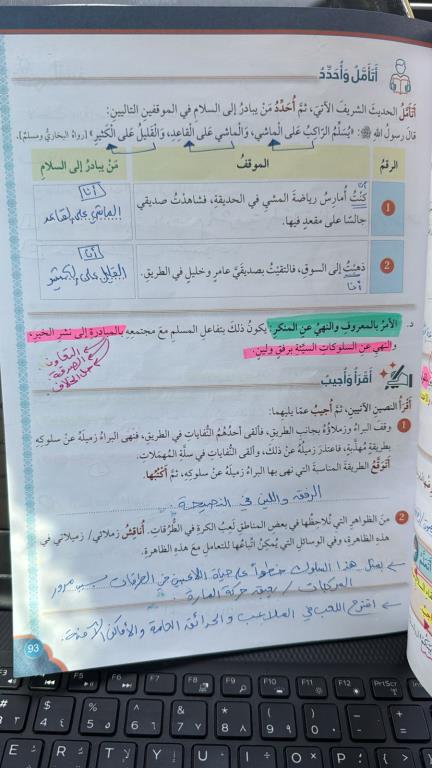 أَتَأَمَّلُ وَأُحَدِّدُ
أَتَأَمَّلُ الحديثَ الشريفَ الآتيَ، ثمَّ أُحَدِّدُ مَنْ يبادرُ إلى السلامِ في الموقفينِ التاليينِ:
قالَ رسولُ اللهِ ﷺ: «يُسَلِّمُ الرّاكِبُ عَلى الْماشي، وَالْماشي عَلى الْقاعِدِ، وَالْقَليلُ عَلى الْكَثيرِ» [رواهُ البخاريُّ ومسلمٌ].
الرقمُ الموقفُ مَنْ يبادرُ إلى السلامِ
1 كنتُ أمارسُ رياضةَ المشيِ في الحديقةِ، فشاهدْتُ صديقي
جالسًا على مقعدٍ فيها.
أنا
أنا
الماشي على القاعد
2 ذهبْتُ إلى السوقِ، فالتقيْتُ بصديقَيَّ عامرٍ وخليلٍ في الطريقِ.
أنا
أنا
القليل على الكثير
د. الأمرُ بالمعروفِ والنهيُ عنِ المنكرِ: يكونُ ذلكَ بتفاعلِ المسلمِ معَ مجتمعِهِ بالمبادرةِ إلى نشرِ الخيرِ،
والنهيِ عنِ السلوكاتِ السيّئةِ برفقٍ ولينٍ.
التعاون
الصدقة
حل الخلاف
أَقْرَأُ وَأُجيبُ
أَقْرَأُ النصينِ الآتيينِ، ثمَّ أُجيبُ عمّا يليهما:
1 وقفَ البراءُ وزملاؤُهُ بجانبِ الطريقِ، فألقى أحدُهُمُ النُّفاياتِ في الطريقِ، فنهى البراءُ زميلَهُ عنْ سلوكِهِ
بطريقةٍ مهذَّبةٍ، فاعتذرَ زميلُهُ عنْ ذلكَ، وألقى النُّفاياتِ في سلّةِ المهمَلاتِ.
أَتَوَقَّعُ الطريقةَ المناسبةَ التي نهى بها البراءُ زميلَهُ عنْ سلوكِهِ، ثمَّ أَكْتُبُها.
الرفق واللين في النصيحة
2 منَ الظواهرِ التي نُلاحِظُها في بعضِ المناطقِ لَعِبُ الكرةِ في الطُّرُقاتِ. أُناقِشُ زملائي/ زميلاتي في
هذهِ الظاهرةِ، وفي الوسائلِ التي يُمكِنُ اتِّباعُها للتعاملِ معَ هذهِ الظاهرةِ.
يمثل هذا السلوك خطراً على حياة اللاعبين في الطرقات بسبب مرور
المركبات / يعيق حركة المارة.
اقترح اللعب في الملاعب والحدائق العامة والأماكن الآمنة.
93
F3 F4 F5 F6 F7 F8 F9 F10 F11 F12 PrtScr
# $ % ^ & * ( ) _ +
3 4 5 6 7 8 9 0 - =
E R T Y U I O P